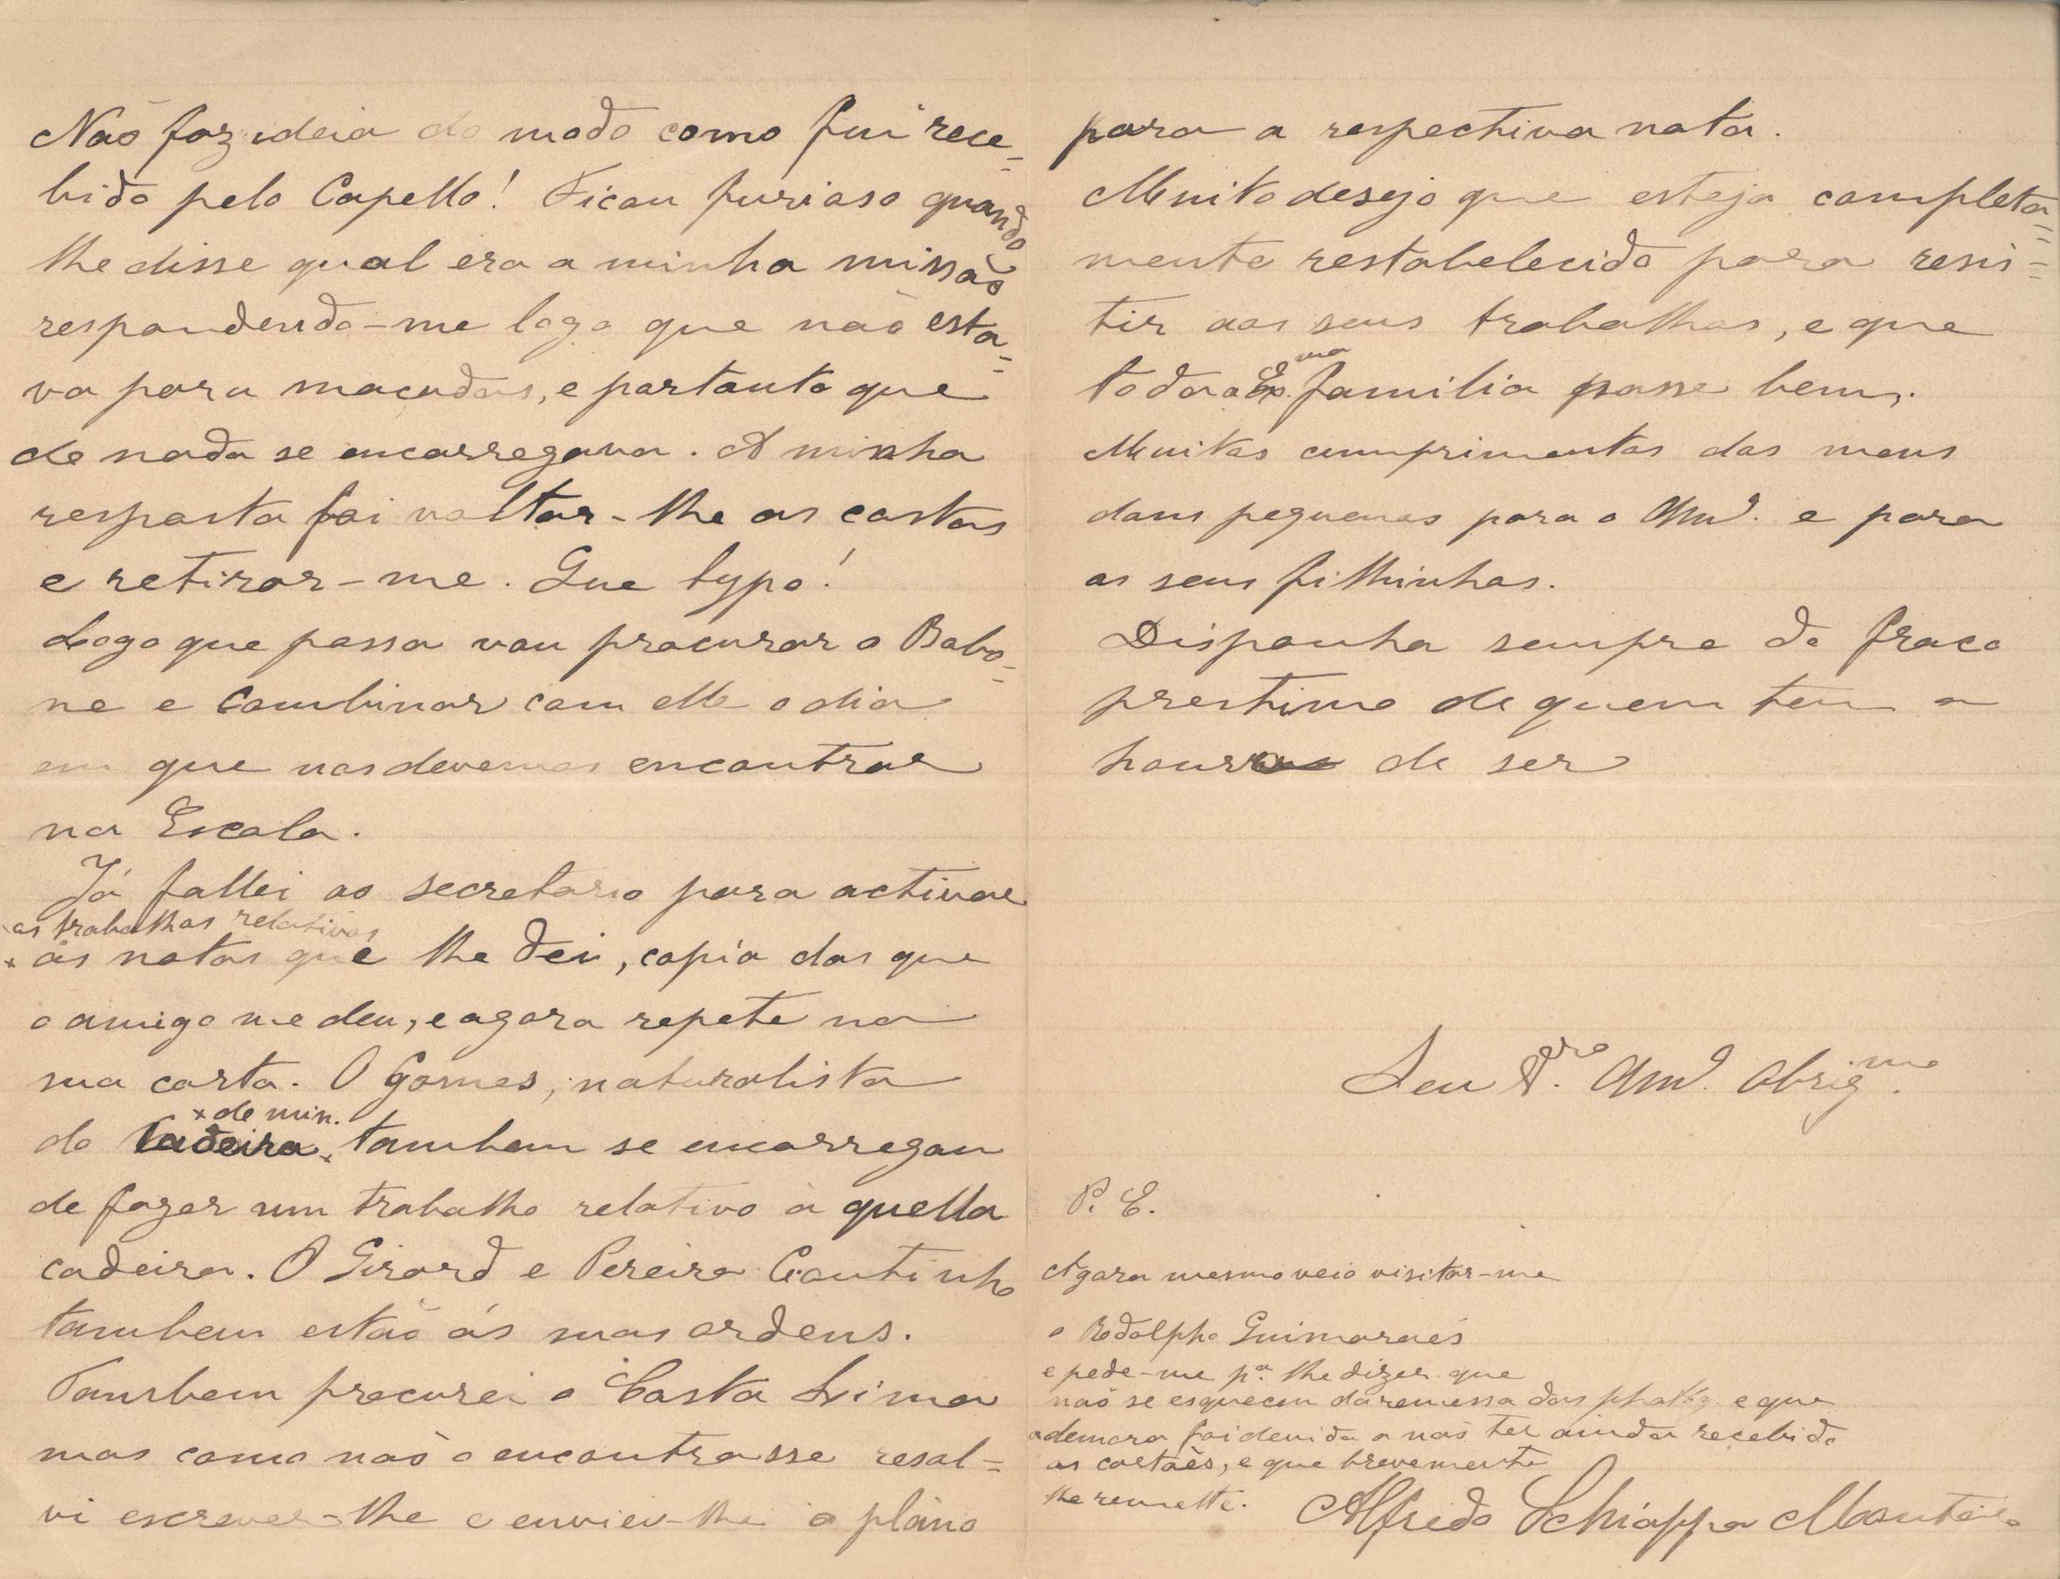 Não faz ideia do modo como fui rece-
bido pelo Capello! Ficou furioso quando
lhe disse qual era a minha missão
respondendo-me logo que não esta-
va para maçadas, e portanto que
de nada se encarregava. A minha
resposta foi voltar-lhe as costas
e retirar-me. Que typo!
Logo que possa vou procurar o Babo-
ne e combinar com elle o dia
em que nos devemos encontrar
na Escola.
Já fallei ao secretario para activar
os trabalhos relativos
ás notas que lhe dei, copia das que
o amigo me deu, e agora repete na
sua carta. O Gomes, naturalista
de min.
da Cadeira, tambem se encarregou
de fazer um trabalho relativo a quella
cadeira. O Girard e Pereira Coutinho
tambem estão ás suas ordens.
Tambem procurei o Costa Lima
mas como não o encontrasse resol-
vi escrever-lhe e enviei-lhe o plano
para a respectiva nota.
Muito desejo que esteja completa-
mente restabelecido para resis-
tir aos seus trabalhos, e que
toda a Exma familia passe bem.
Muitos cumprimentos dos meus
dous pequenos para o Amo. e para
os seus filhinhos.
Disponha sempre do fraco
prestimo de quem tem a
honra de ser
Seu Amo. Obrigmo.
P. E.
Agora mesmo veio visitar-me
o Rodolpho Guimarães
e pede-me pa. lhe dizer que
não se esqueceu da remessa das phot. e que
a demora foi devida a não ter ainda recebido
os cartões, e que brevemente
lhe remette.
Alfredo Schiappa Monteiro